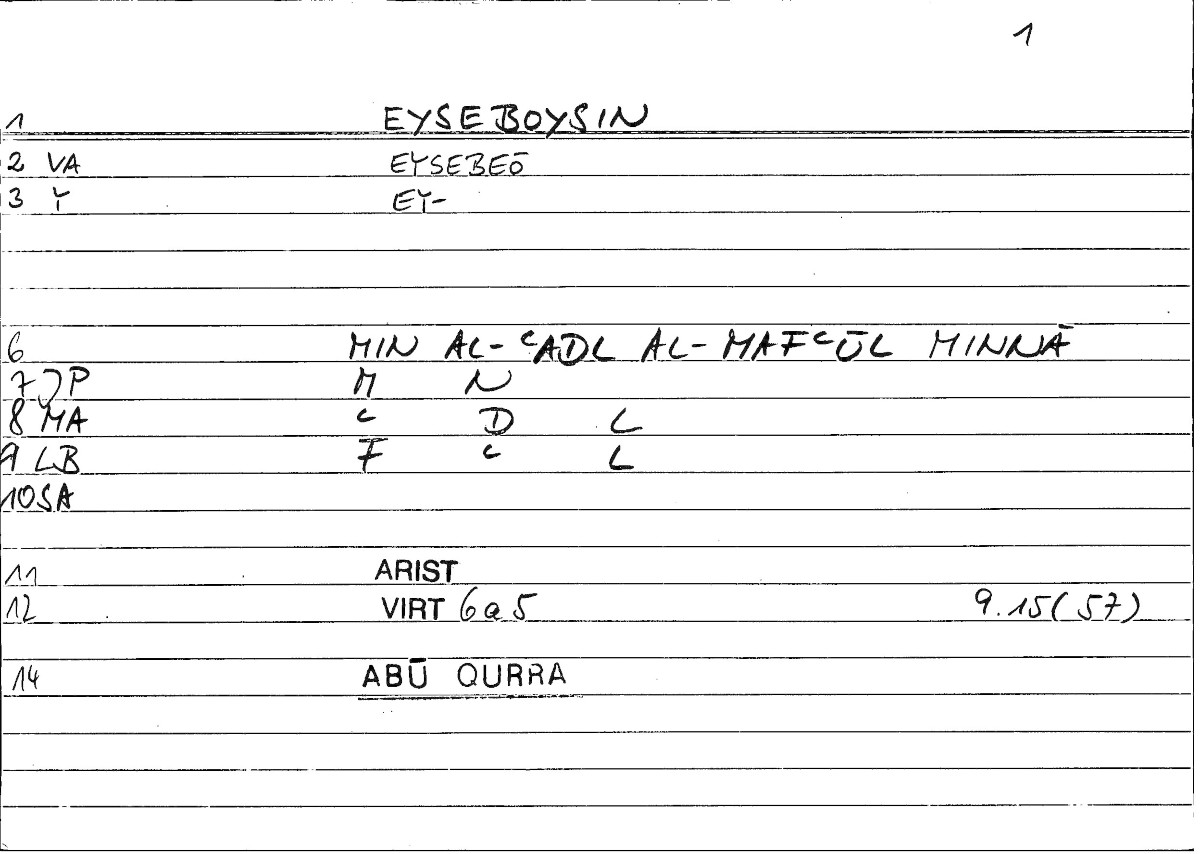 1
1 EYSEBOYSIN
2 VA EYSEBEŌ
3 Y EY-
6 MIN AL-ᶜADL AL-MAFᶜŪL MINNĀ
7 JP M N
8 MA ᶜ D L
9 LB F ᶜ L
10 SA
11 ARIST
12 VIRT 6a5 9.15(57)
14 ABŪ QURRA